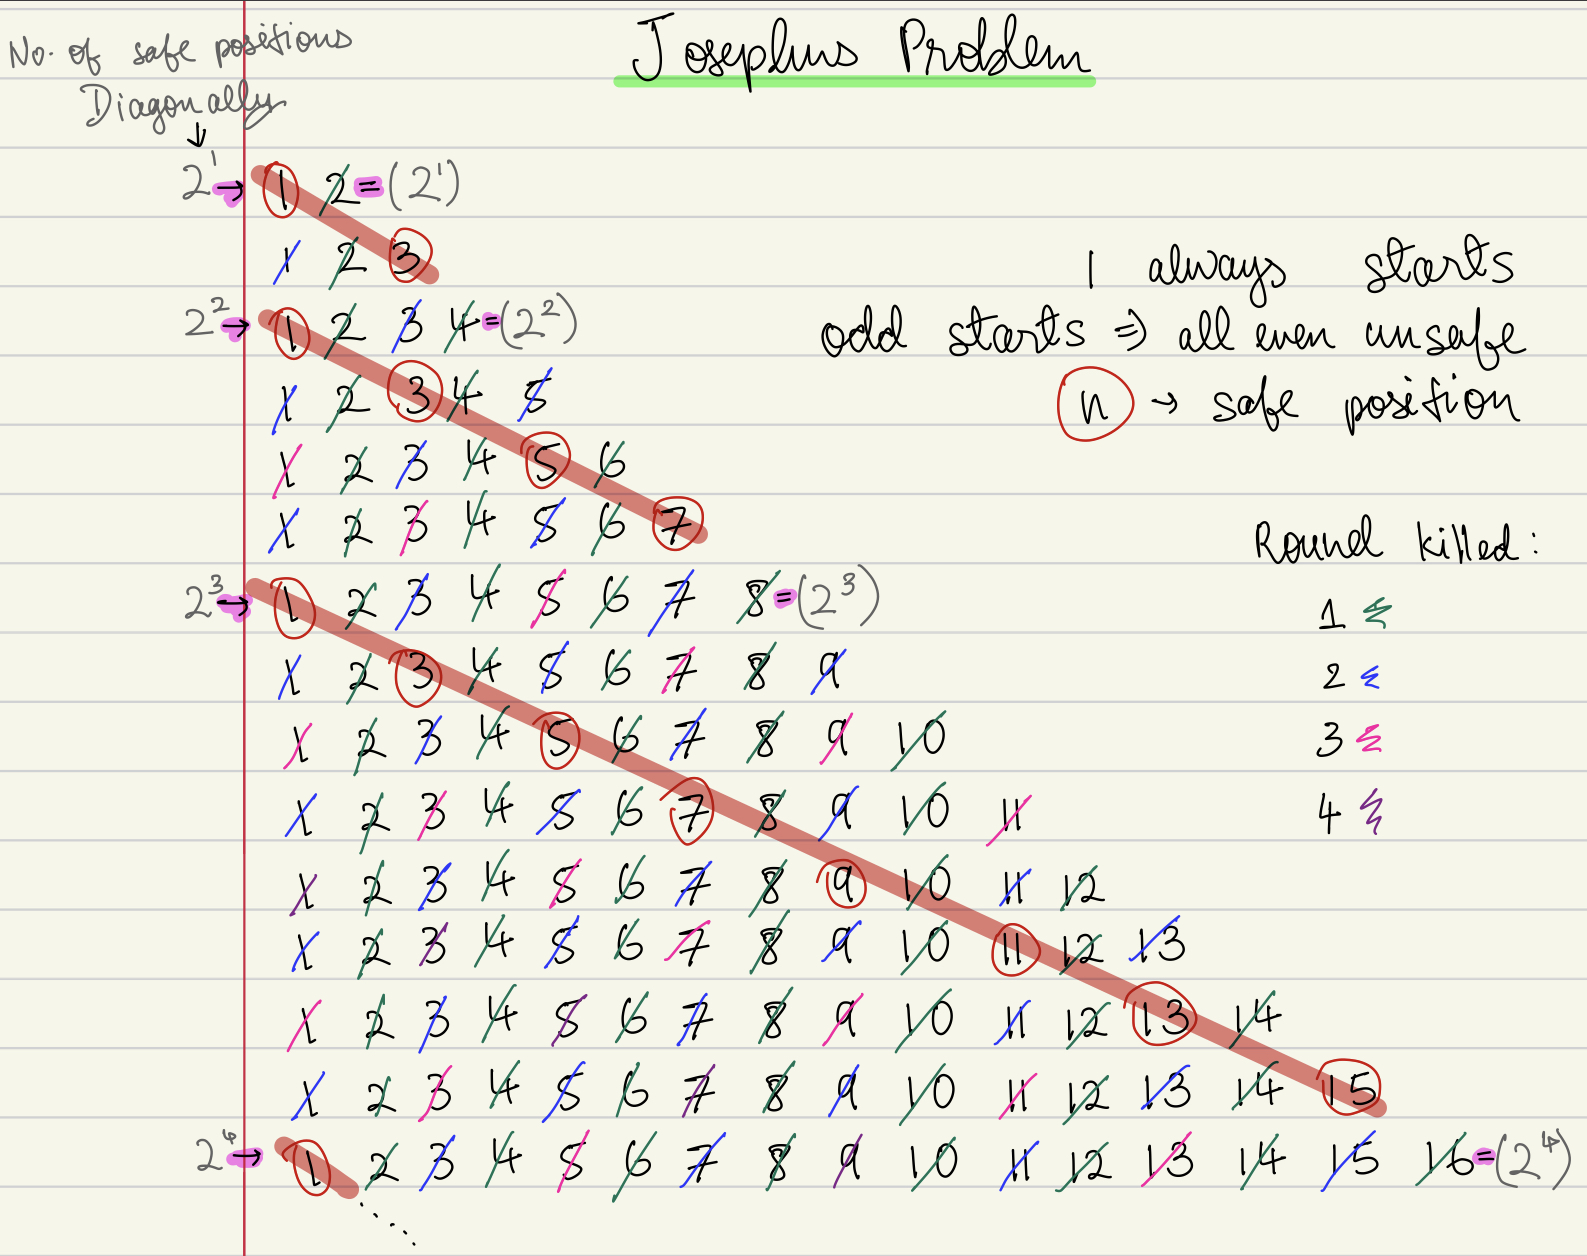 Josephus Problem
No. of safe positions
Diagonally
↓
2¹ → 1 2 = (2¹)
1 2 3
2² → 1 2 3 4 = (2²)
1 2 3 4 5
1 2 3 4 5 6
1 2 3 4 5 6 7
2³ → 1 2 3 4 5 6 7 8 = (2³)
1 2 3 4 5 6 7 8 9
1 2 3 4 5 6 7 8 9 10
1 2 3 4 5 6 7 8 9 10 11
1 2 3 4 5 6 7 8 9 10 11 12
1 2 3 4 5 6 7 8 9 10 11 12 13
1 2 3 4 5 6 7 8 9 10 11 12 13 14
1 2 3 4 5 6 7 8 9 10 11 12 13 14 15
2⁴ → 1 2 3 4 5 6 7 8 9 10 11 12 13 14 15 16 = (2⁴)
1 always starts
odd starts ⇒ all even unsafe
n → safe position
Round killed:
1
2
3
4